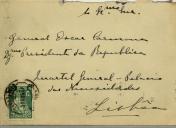 General Oscar Carmona
Presidente da Republica
Quartel General - Palacio
das Necessidades
Lisbôa